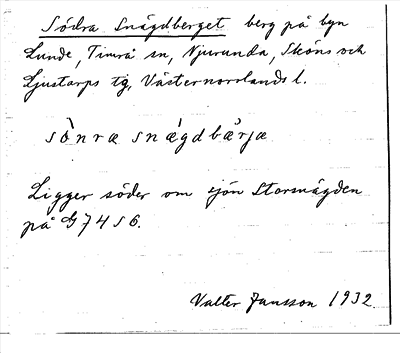 Södra Snägdberget berg på byn
Lunde, Timrå sn, Njurunda, Sköns och
Ljustorps tg, Västernorrlands l.
sö̀nræ snæ̀gdbæ̀rjæ
Ligger söder om sjön Storsnägden
på G 74 s 6.
Valter Jansson 1932.